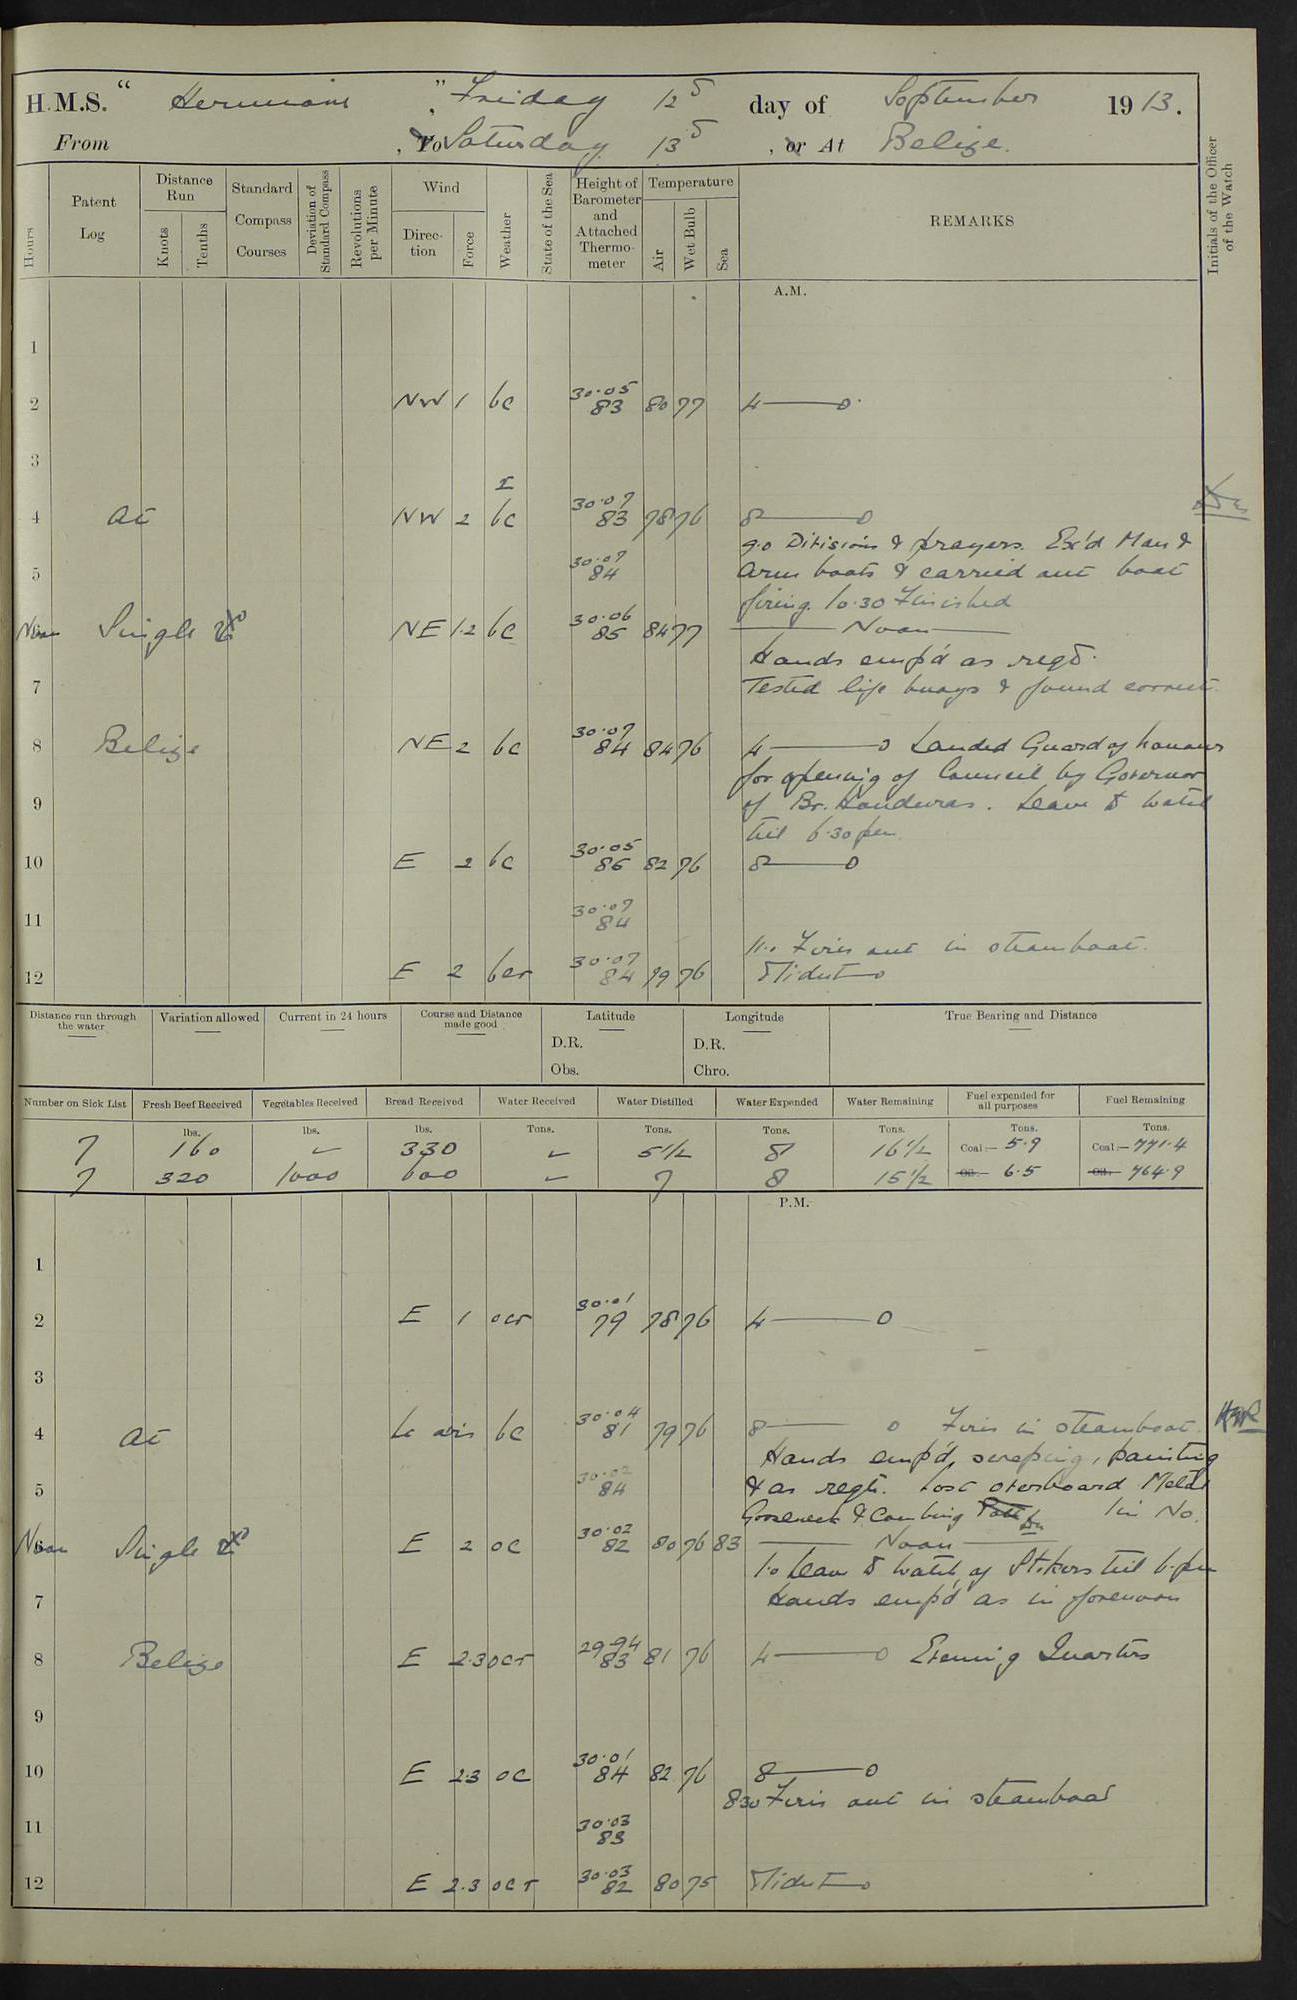 H.M.S. " Hermione ", Friday 12th day of September 1913.
From , To Saturday 13th , or At Belize.
Hours
Patent Log
Distance Run
Knots
Tenths
Standard Compass Courses
Deviation of Standard Compass
Revolutions per Minute
Wind
Direction
Force
Weather
State of the Sea
Height of Barometer and Attached Thermometer
Temperature
Air
Wet Bulb
Sea
REMARKS
Initials of the Officer of the Watch
A.M.
1
2 NW 1 bc 30.05 83 80 77 4 — 0
3
4 At NW 2 bc 30.07 83 78 76 8 — 0
9.0 Division & prayers. Ex'd Man &
5 30.07 84 arm boats & carried out boat
firing. 10.30 Finished
Noon Single NE 1.2 bc 30.06 85 84 77 — Noon —
Hands emp'd as reqd.
7 Tested life buoys & found correct.
8 Belize NE 2 bc 30.07 84 84 76 4 — 0 Landed Guard of honour
for opening of Council by Governor
9 of Br. Honduras. Leave to watch
till 6.30 pm.
10 E 2 bc 30.05 86 82 76 8 — 0
11 30.07 84
11.0 Fires out in steamboat.
12 E 2 bcr 30.07 84 79 76 Midnt — 0
Distance run through the water
Variation allowed
Current in 24 hours
Course and Distance made good
Latitude
D.R.
Obs.
Longitude
D.R.
Chro.
True Bearing and Distance
Number on Sick List
Fresh Beef Received
Vegetables Received
Bread Received
Water Received
Water Distilled
Water Expended
Water Remaining
Fuel expended for all purposes
Fuel Remaining
lbs. lbs. lbs. Tons. Tons. Tons. Tons. Tons. Tons.
7 160 - 330 - 5½ 8 16½ Coal:— 5.9 Coal:— 771.4
7 320 1000 600 - 7 8 15½ Oil:— 6.5 Oil:— 764.9
P.M.
1
2 E 1 ocr 30.01 79 78 76 4 — 0
3
4 At Lt airs bc 30.04 81 79 76 8 — 0 Fires in steamboat.
Hands emp'd, scraping, painting
5 30.02 84 & as reqd. Lost overboard Metal
Gooseneck & Coupling 1 in No.
6 Noon Single E 2 oc 30.02 82 80 76 83 — Noon —
1.0 Leave to watch of Stokers till 6. pm
7 Hands emp'd as in forenoon
8 Belize E 2.3 ocr 29.94 83 81 76 4 — 0 Evening Quarters
9
10 E 2.3 oc 30.01 84 82 76 8 — 0
8.30 Fires out in steamboat
11 30.03 83
12 E 2.3 ocr 30.03 82 80 75 Midnt — 0